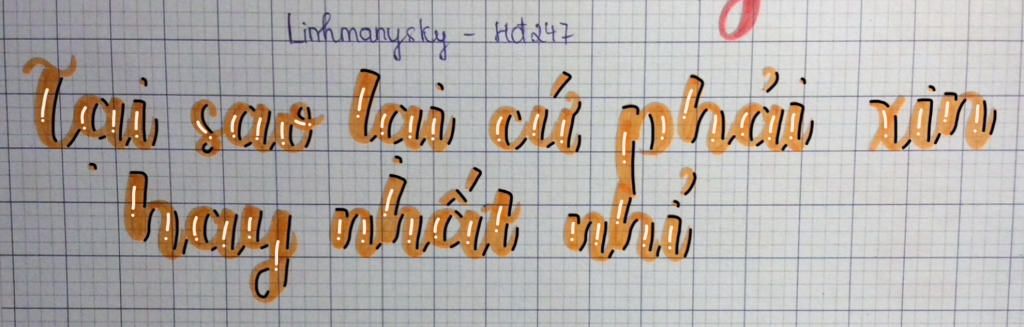 Linhmanysky - Hđ247
Tại sao lại cứ phải xin
hay nhất nhỉ